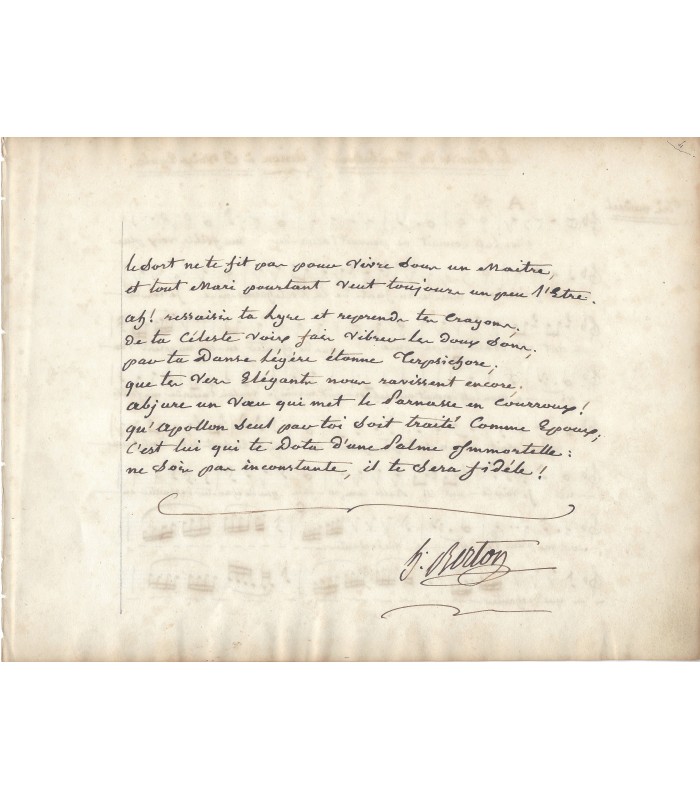 4.
le Sort ne te fit pas pour Vivre Sous un Maître,
et tout Mari pourtant Veut toujours un peu l'Etre.
ah! ressaisis ta Lyre et reprends tes Crayons,
de ta Céleste Voix fais Vibrer les doux Sons,
par ta Danse légère étonne Terpsichore,
que tes Vers Elégants nous ravissent encore.
abjure un Vœu qui met le Parnasse en Courroux!
qu'Apollon Seul par toi Soit traité Comme Epoux,
C'est lui qui te Dota d'une Palme Immortelle:
ne Sois pas inconstante, il te Sera fidéle!
h. Berton